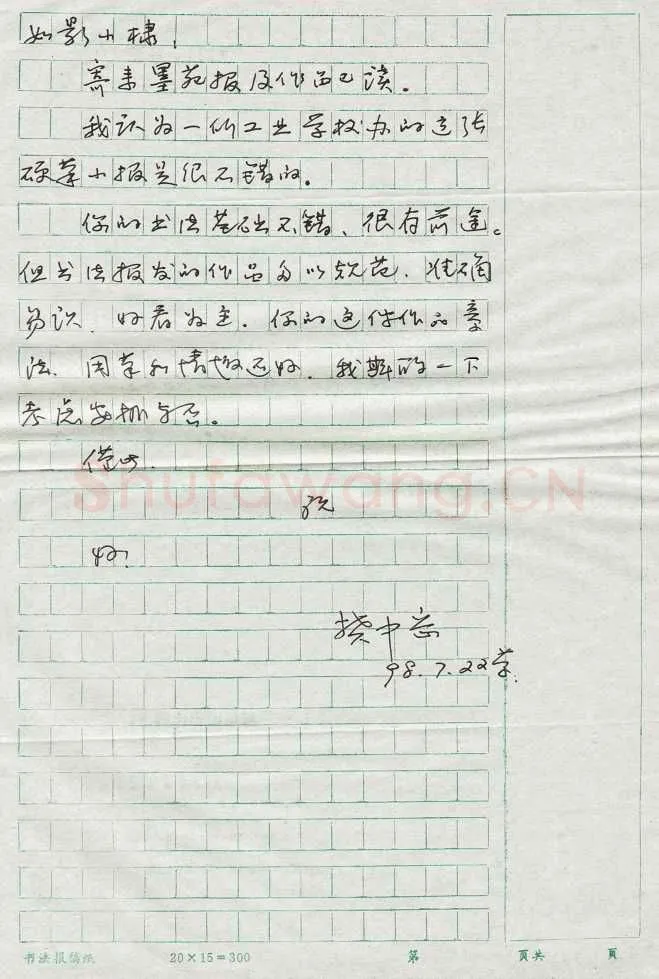 如影小棣，
寄来墨苑报及作品已读。
我认为一所工业学校办的这张
硬笔小报是很不错的。
你的书法基础不错、很有前途。
但书法报发的作品多以规范、准确
易识、好看为主。你的这件作品章
法、用笔和情趣还好，我斟酌一下
考虑安排与否。
借此，
祝
好！
中
98.7.22草.
Shufawang.CN
书法报稿纸 20×15=300 第 页共 页